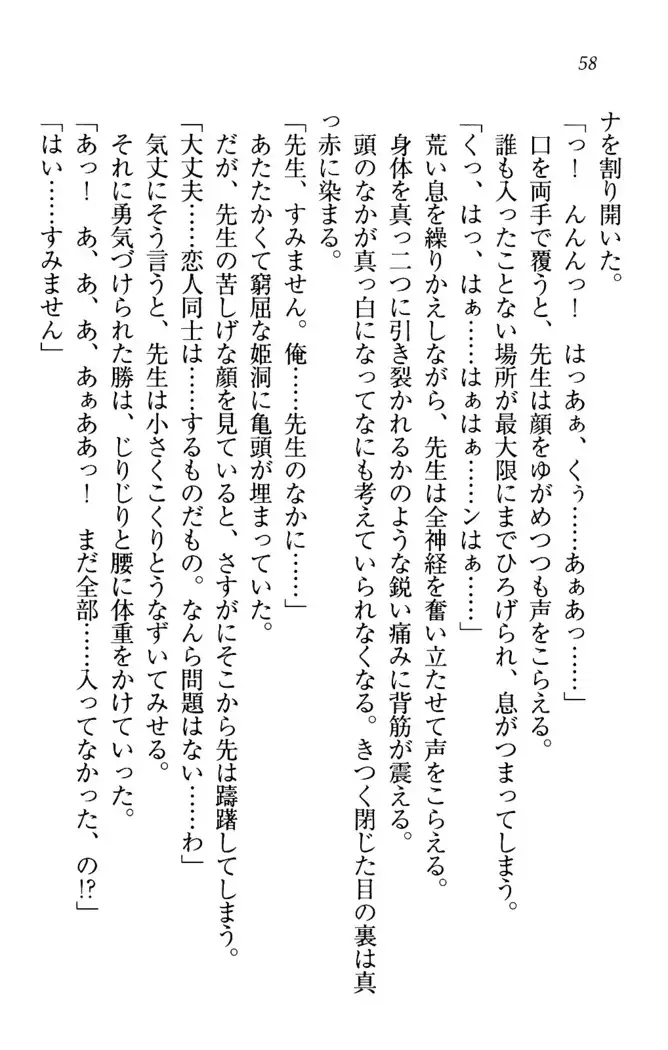 58
ナを割り開いた。
「っ！　んんんっ！　はっあぁ、くぅ……あぁあっ……」
口を両手で覆うと、先生は顔をゆがめつつも声をこらえる。
誰も入ったことない場所が最大限にまでひろげられ、息がつまってしまう。
「くっ、はっ、はぁ……はぁはぁ……ンはぁ……」
荒い息を繰りかえしながら、先生は全神経を奮い立たせて声をこらえる。
身体を真っ二つに引き裂かれるかのような鋭い痛みに背筋が震える。
頭のなかが真っ白になってなにも考えていられなくなる。きつく閉じた目の裏は真
っ赤に染まる。
「先生、すみません。俺……先生のなかに……」
あたたかくて窮屈な姫洞に亀頭が埋まっていた。
だが、先生の苦しげな顔を見ていると、さすがにそこから先は躊躇してしまう。
「大丈夫……恋人同士は……するものだもの。なんら問題はない……わ」
気丈にそう言うと、先生は小さくこくりとうなずいてみせる。
それに勇気づけられた勝は、じりじりと腰に体重をかけていった。
「あっ！　あ、あ、あ、あぁああっ！　まだ全部……入ってなかった、の!?」
「はい……すみません」